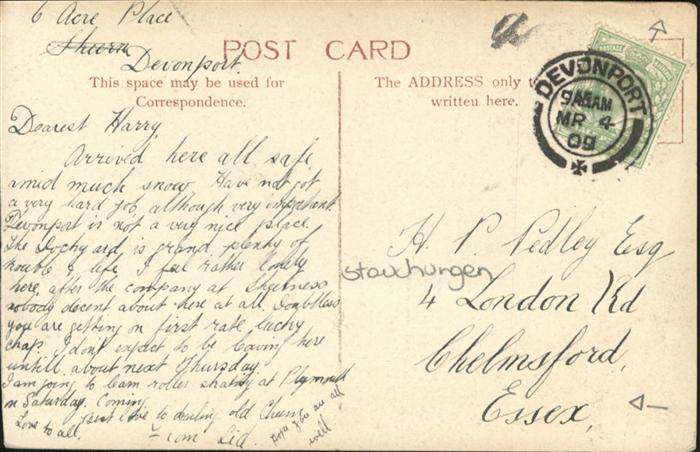 6 Acre Place
Sheern
Devonport.
POST CARD
This space may be used for
Correspondence.
The ADDRESS only t
written here.
DEVONPORT
9 AM
MR 4
09
Dearest Harry
Arrived here all safe
amid much snow. Have not got
a very hard job, although very important
Devonport is not a very nice place
The Dockyard is grand, plenty of
& life, I feel rather lonely
here, after the company at Sheerness
nobody decent about here at all. Doubtless
you are getting on first rate, lucky
chap. I don't expect to be leaving here
untill about next Thursday.
I am going to learn roller skating at Plymouth
on Saturday. Coming
Best love to darling old Chum
Love to all.
From Sid.
Hope you are all
well
H. P. Pedley Esq
4 London Rd
Chelmsford,
Essex,